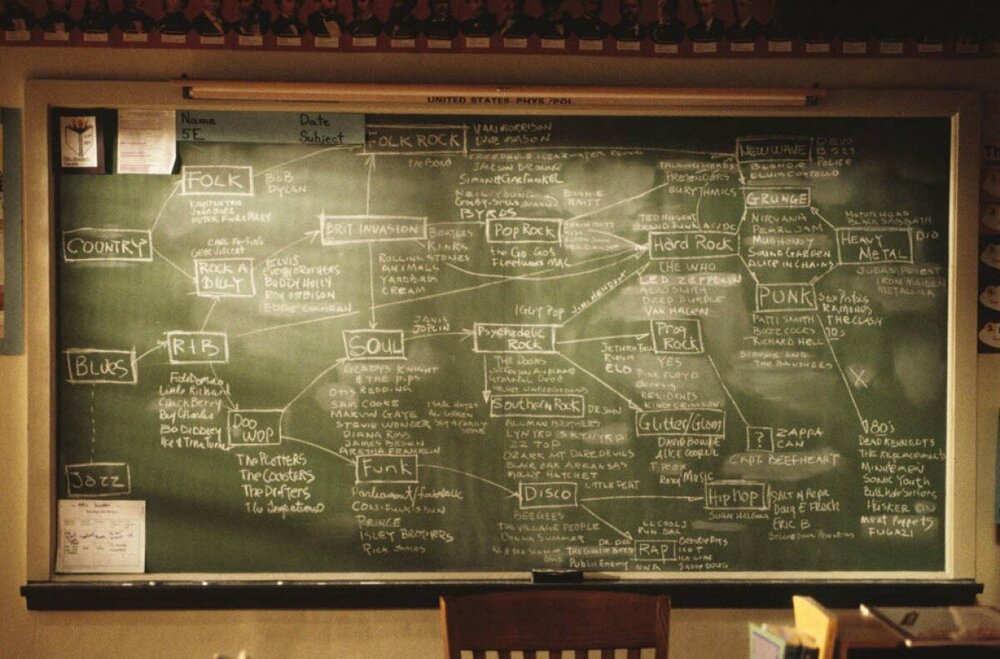 UNITED STATES-PHYS./POL.
Name Date
5E Subject
FOLK ROCK
VAN MORRISON
DAVE MASON
CREEDENCE CLEARWATER REVIVAL
JACKSON BROWNE
Simon & Garfunkel
NEIL YOUNG
BYRDS
BONNIE
RAITT
NEW WAVE
DEVO
Police
BLONDIE
ELVIS COSTELLO
TALKING HEADS
PRETENDERS
EURYTHMICS
FOLK
BOB
DYLAN
KINGSTON TRIO
JOAN BAEZ
PETER PAUL & MARY
COUNTRY
CARL PERKINS
GENE VINCENT
ROCK A
BILLY
ELVIS
Everly Brothers
BUDDY HOLLY
ROY ORBISON
EDDIE COCHRAN
BRIT INVASION
BEATLES
KINKS
ROLLING STONES
ANIMALS
YARDBIRDS
CREAM
POP ROCK
the Go Go's
Fleetwood MAC
TED NUGENT
GRAND FUNK AC/DC
Hard Rock
THE WHO
LED ZEPPELIN
DEEP PURPLE
VAN HALEN
GRUNGE
NIRVANA
PEARL JAM
MUDHONEY
SOUND GARDEN
ALICE IN CHAINS
MOTORHEAD
BLACK SABBATH
HEAVY
METAL
DIO
JUDAS PRIEST
IRON MAIDEN
METALLICA
PUNK
SEX PISTOLS
RAMONES
THE CLASH
70's
PATTI SMITH
BUZZCOCKS
RICHARD HELL
SIOUXSIE AND
THE BANSHEES
80's
DEAD KENNEDYS
THE REPLACEMENTS
Minutemen
SONIC YOUTH
Butthole Surfers
HUSKER DU
Meat Puppets
FUGAZI
BLUES
R+B
Fats Domino
Little Richard
Chuck Berry
Ray Charles
BO DIDDLEY
Ike & Tina Turner
JAZZ
DOO
WOP
THE PLATTERS
The COASTERS
The Drifters
The Temptations
SOUL
JANIS
JOPLIN
GLADYS KNIGHT
& THE PIPS
OTIS REDDING
SAM COOKE
MARVIN GAYE
STEVIE WONDER
DIANA ROSS
JAMES BROWN
ARETHA FRANKLIN
ISAAC HAYES
AL GREEN
SLY & FAMILY
STONE
Funk
Parliament/funkadelic
CON-FUNK-SHUN
PRINCE
ISLEY BROTHERS
RICK JAMES
IGGY POP
JIMI HENDRIX
Psychedelic
ROCK
THE DOORS
JEFFERSON AIRPLANE
GRATEFUL DEAD
VELVET UNDERGROUND
Southern ROCK
DR JOHN
ALLMAN BROTHERS
LYNYRD SKYNYRD
ZZ TOP
OZARK MT DAREDEVILS
BLACK OAK ARKANSAS
MOLLY HATCHET
LITTLE FEAT
Prog
ROCK
JETHRO TULL
RUSH
ELO
YES
PINK FLOYD
Genesis
RESIDENTS
KING CRIMSON
Glitter/Glam
DAVID BOWIE
ALICE COOPER
T. REX
ROXY MUSIC
?
ZAPPA
CAN
CAPT. BEEFHEART
DISCO
BEE GEES
THE VILLAGE PEOPLE
DONNA SUMMER
Hip Hop
SALT N PEPA
Doug E Fresh
ERIC B
LL COOL J
RUN DMC
DR. DRE
RAP
Public Enemy
NWA
ICE T
ICE CUBE
SNOOP DOGG